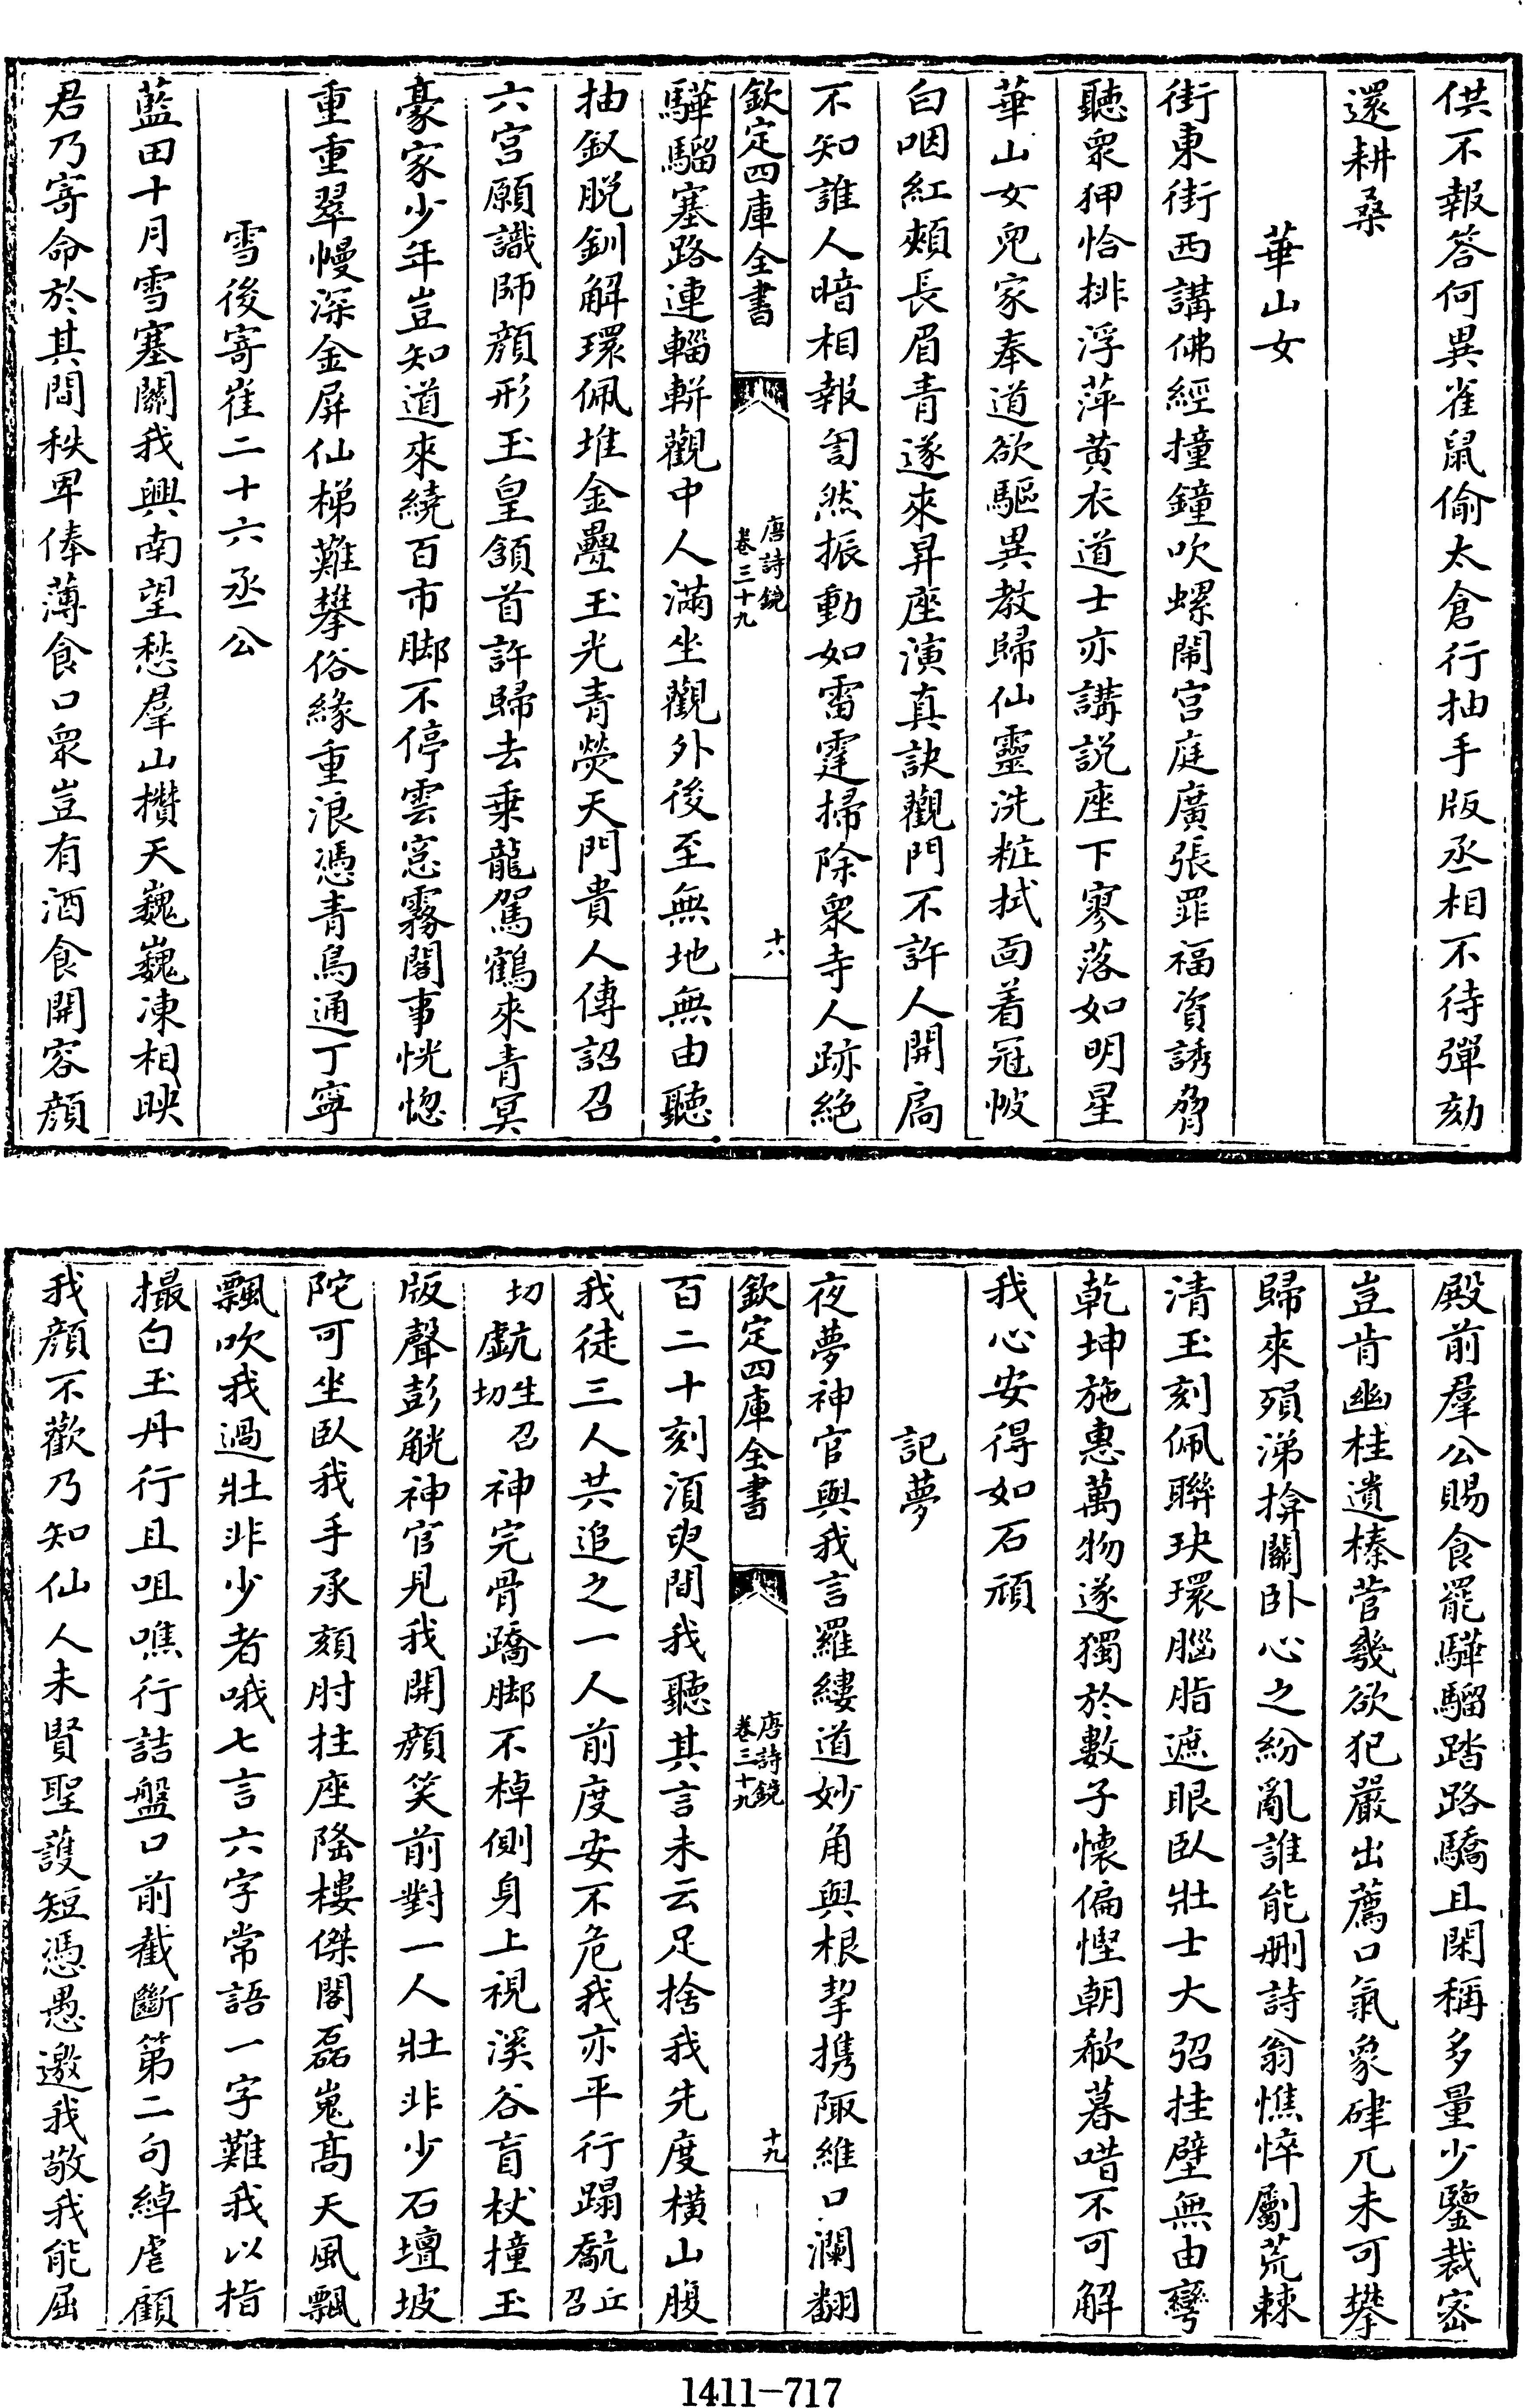 供不報答何異雀鼠偷太倉行抽手版丞相不待彈劾
還耕桑
華山女
街東街西講佛經撞鐘吹螺鬧宫庭廣張罪福資誘脅
聽衆狎恰排浮萍黄衣道士亦講説座下寥落如明星
華山女兒家奉道欲驅異教歸仙靈洗粧拭面着冠帔
白咽紅頰長眉青遂來昇座演真訣觀門不許人開扃
不知誰人暗相報訇然振動如雷霆掃除衆寺人跡絶
欽定四庫全書
唐詩鏡
卷三十九
十八
驊騮塞路連輜軿觀中人滿坐觀外後至無地無由聽
抽釵脱釧解環佩堆金疊玉光青熒天門貴人傳詔召
六宫願識師顔形玉皇頷首許歸去乘龍駕鶴來青冥
豪家少年豈知道來繞百帀脚不停雲窓霧閣事恍惚
重重翠幔深金屏仙梯難攀俗緣重浪憑青鳥通丁寧
雪後寄崔二十六丞公
藍田十月雪塞關我興南望愁羣山攢天巍巍凍相映
君乃寄命於其間秩卑俸薄食口衆豈有酒食開容顔
殿前羣公賜食罷驊騮踏路驕且閑稱多量少鑒裁密
豈肯幽桂遺榛菅幾欲犯嚴出薦口氣象硉兀未可攀
歸來殞涕揜關卧心之紛亂誰能刪詩翁憔悴劚荒棘
清玉刻佩聯玦環腦脂遮眼臥壯士大弨挂壁無由彎
乾坤施惠萬物遂獨於數子懷偏慳朝欷暮唶不可解
我心安得如石頑
記夢
夜夢神官與我言羅縷道妙角與根挈攜陬維口瀾翻
欽定四庫全書
唐詩鏡
卷三十九
十九
百二十刻須臾間我聽其言未云足捨我先度横山腹
我徒三人共追之一人前度安不危我亦平行蹋𩨭丘召
切䖏生召切神完骨蹻脚不棹側身上視溪谷盲杖撞玉
版聲彭觥神官見我開顔笑前對一人壯非少石壇坡
陀可坐臥我手承頦肘拄座隆樓傑閣磊嵬高天風飄
飄吹我過壯非少者哦七言六字常語一字難我以指
撮白玉丹行且咀噍行詰盤口前截斷第二句綽虐顧
我顔不歡乃知仙人未賢聖護短憑愚邀我敬我能屈
1411-717